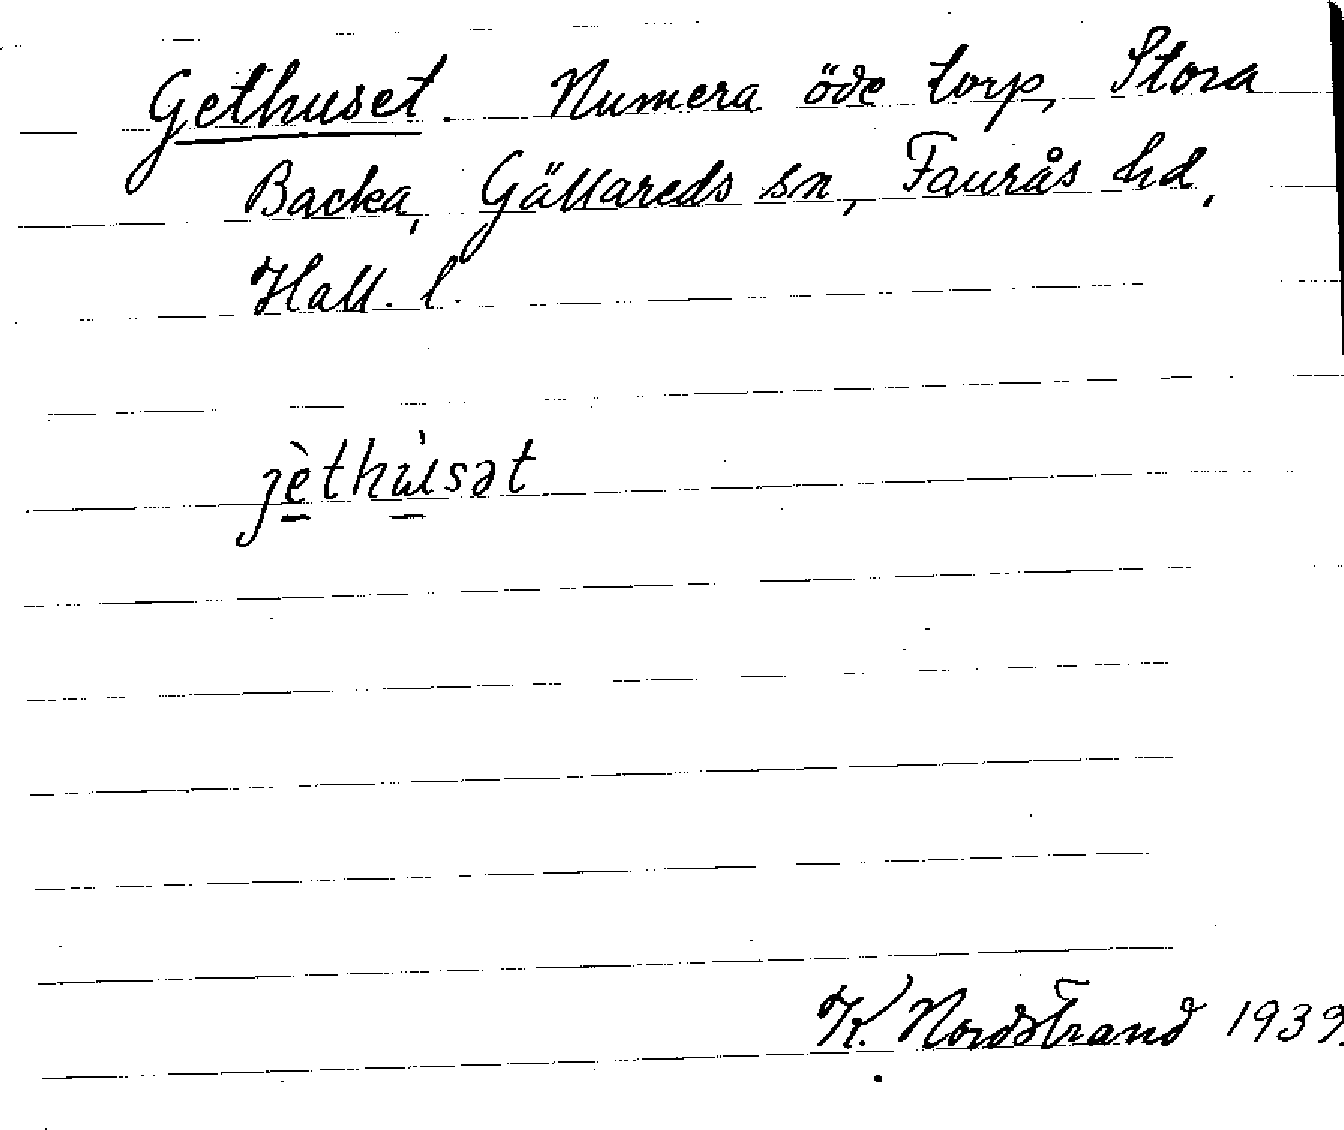 Gethuset. Numera öde torp, Stora
Backa, Gällareds sn, Faurås hd,
Hall. l.
jèthùsət
K. Nordstrand 1939.